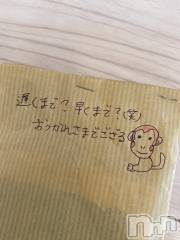 遅くまで？早くまで？(笑)
おつかれさまでござる